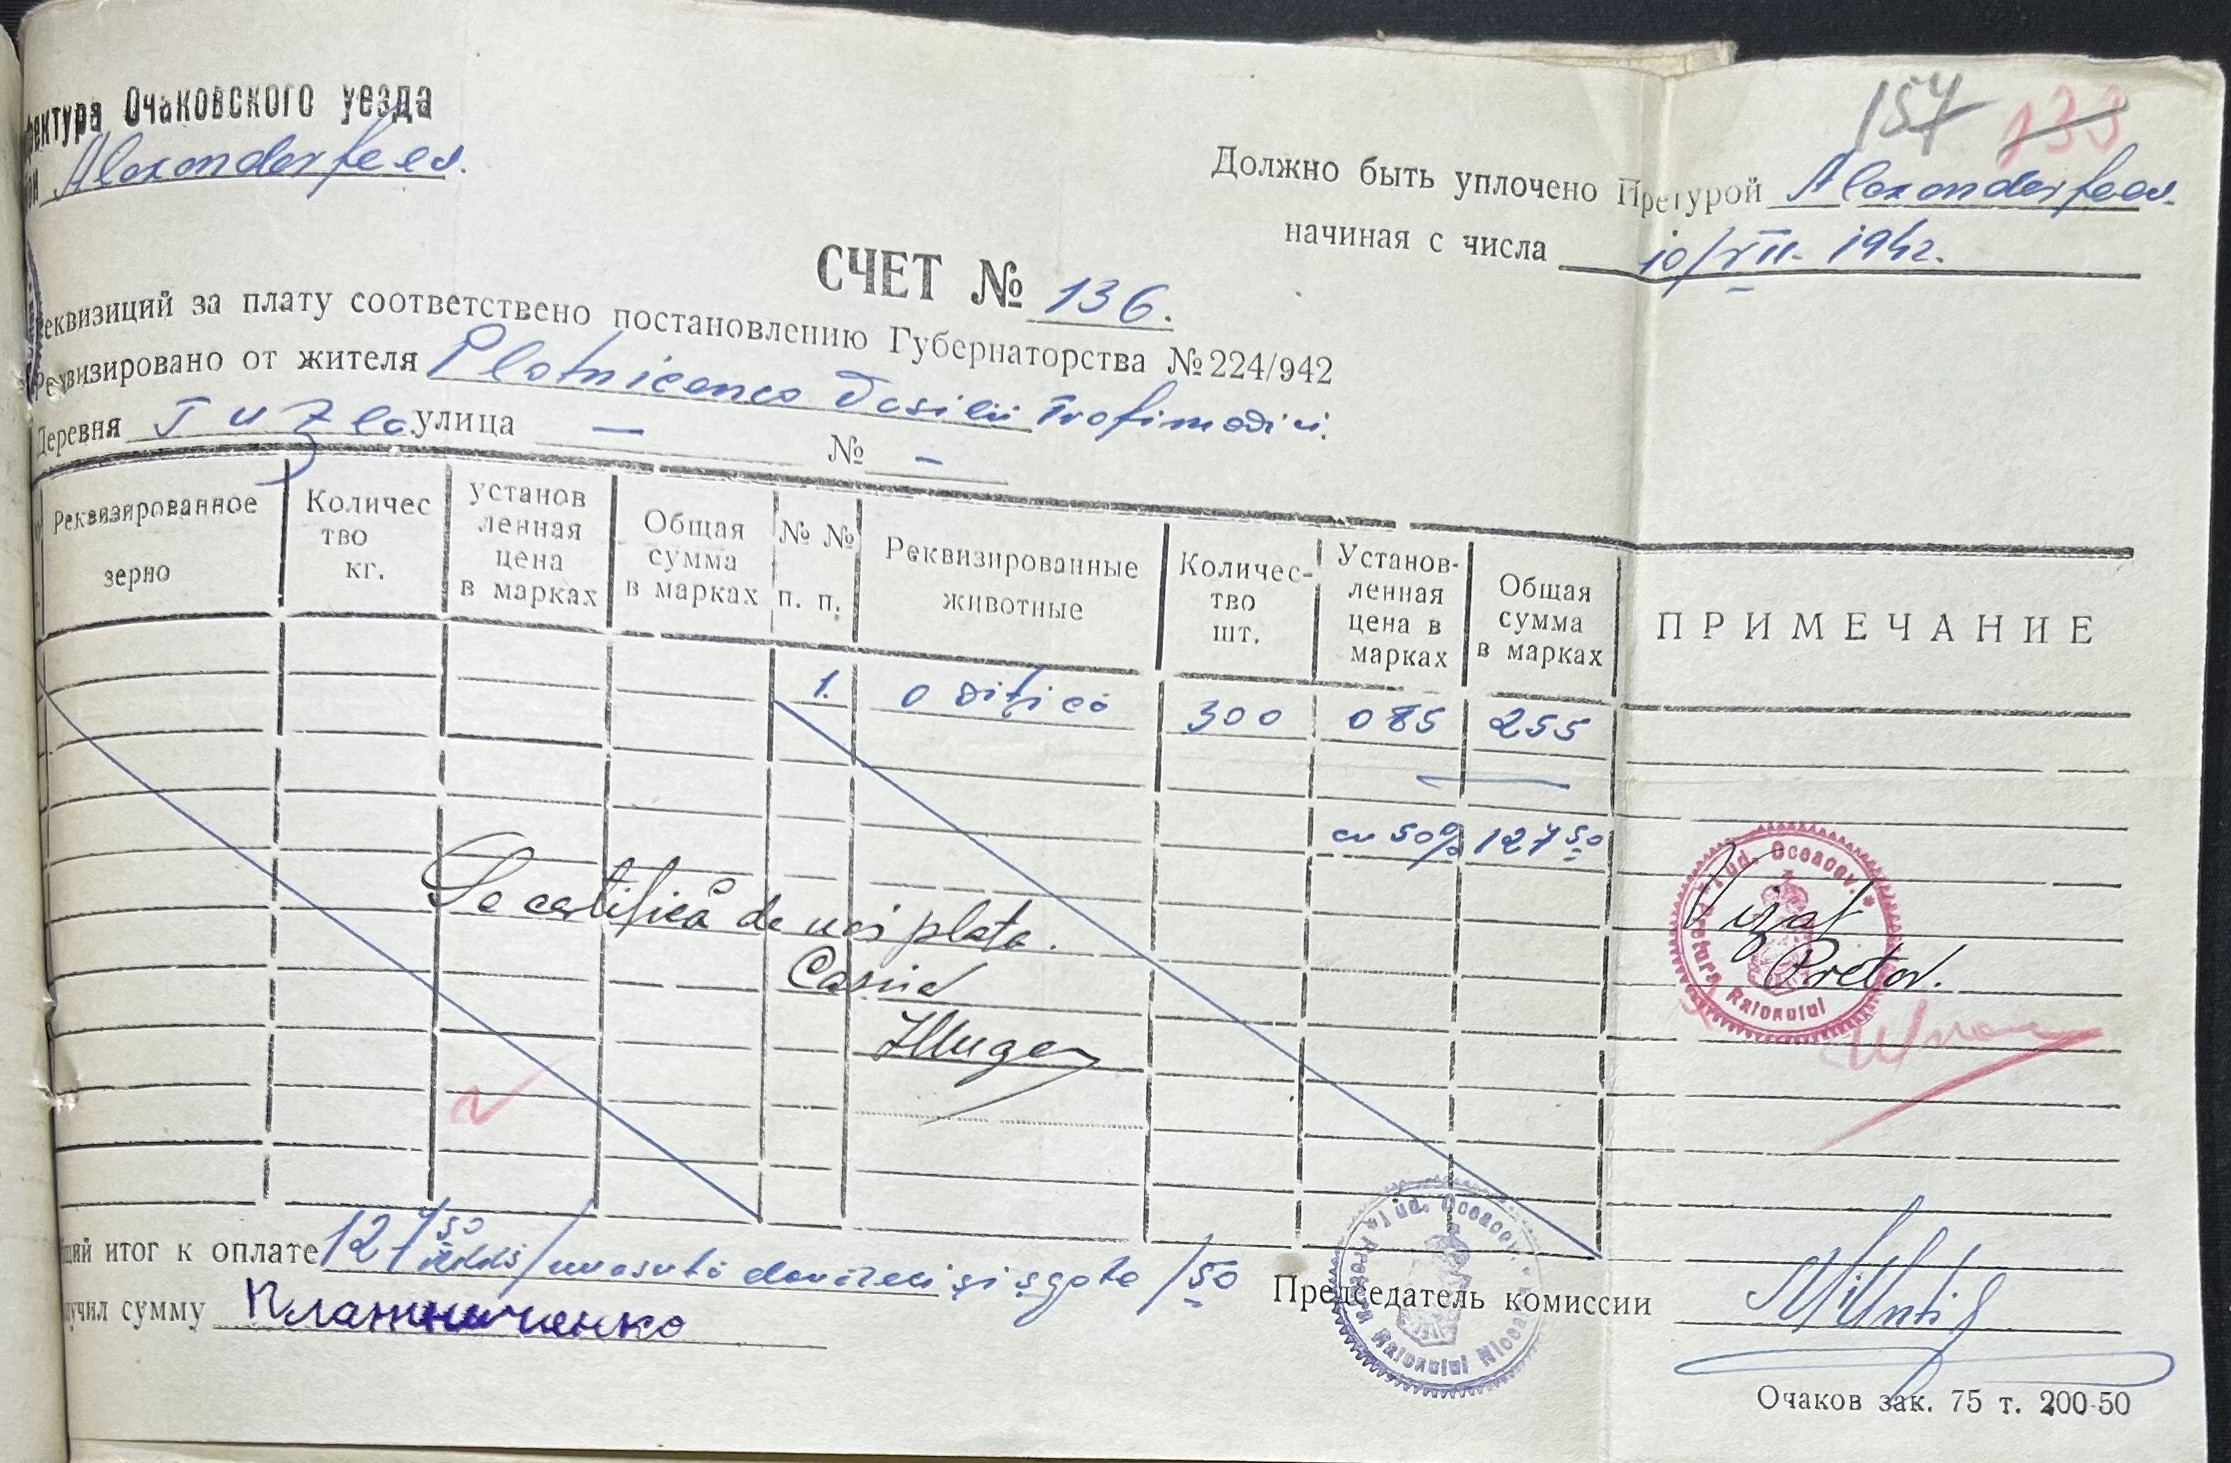 фектура Очаковского уезда
он Alexanderfeld.
157 133
Должно быть уплочено Претурой Alexanderfeld.
начиная с числа 10/VII. 1942.
СЧЕТ № 136.
Реквизиций за плату соответствено постановлению Губернаторства № 224/942
Реквизировано от жителя Plotnicenco Vasilii Trofimovici.
Деревня Tuzla улица — № —
Реквизированное зерно
Количество кг.
установленная цена в марках
Общая сумма в марках
№ № п. п.
Реквизированные животные
Количество шт.
Установленная цена в марках
Общая сумма в марках
ПРИМЕЧАНИЕ
1. O vițică 300 085 255
cu 50% 127 50
Se certifică de noi plata.
Casier
Vizat
Pretor.
Jud. Oceacov. Pretura Raionului
щий итог к оплате 127 50 /unasută douăzeci și șapte /50
лучил сумму Платниченко
Председатель комиссии
Jud. Oceacov. Pretura Raionului
Очаков зак. 75 т. 200-50